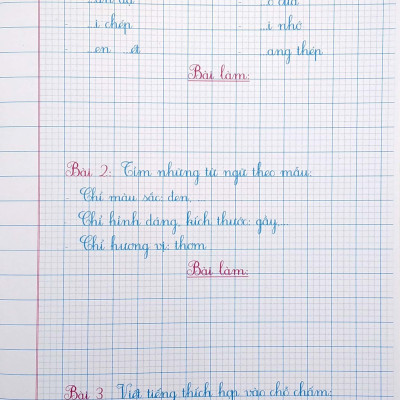 ...i chép ...i nhớ
...en ...ét ...ang thép
Bài làm:
Bài 2: Tìm những từ ngữ theo mẫu:
- Chỉ màu sắc: đen, ...
- Chỉ hình dáng, kích thước: gầy...
- Chỉ hương vị: thơm
Bài làm:
Bài 3: Viết tiếng thích hợp vào chỗ chấm: